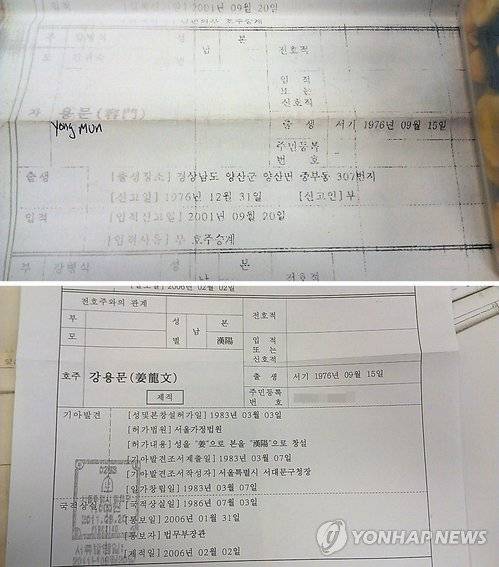 2001년 09월 20일
호주승계
성
본
남
전호적
입적
또는
신호적
자 용문(龍門)
Yong Mun
출생 서기 1976년 09월 15일
주민등록
번호
출생 [출생장소] 경상남도 양산군 양산면 중부동 307번지
[신고일] 1976년 12월 31일 [신고인] 부
입적 [입적신고일] 2001년 09월 20일
[입적사유] 부 호주승계
부 성 본
남 전호적
2006년 02월 02일
전호주와의 관계
부 성 남 본 전호적
모 별 漢陽 입적
또는
신호적
호주 강용문(姜龍文) 출생 서기 1976년 09월 15일
제적 주민등록
번호
기아발견 [성및본창설허가일] 1983년 03월 03일
[허가법원] 서울가정법원
[허가내용] 성을 "姜"으로 본을 "漢陽"으로 창설
[기아발견조서제출일] 1983년 03월 07일
[기아발견조서작성자] 서울특별시 서대문구청장
[일가창립일] 1983년 03월 07일
국적상실 [국적상실일] 1986년 07월 03일
[통보일] 2006년 01월 31일
[통보자] 법무부장관
[제적일] 2006년 02월 02일
YONHAP NEWS